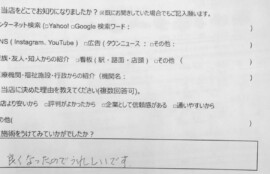 当店をどこでお知りになりましたか？※既にお聞きしていた場合でもご記入願います。
ンターネット検索（□Yahoo! □Google 検索ワード： ）
NS（Instagram、YouTube） □広告（タウンニュース： □その他： ）
族・友人・知人からの紹介 □看板（駅・譜面・店頭） □その他（ ）
療機関・福祉施設・行政からの紹介（機関名： ）
当店に決めた理由を教えてください（複数回答可）。
店より安いから □評判がよかったから □企業として信頼感がある □通いやすいから
の他（ ）
施術をうけてみていかがでしたか？
良くなったのでうれしいです